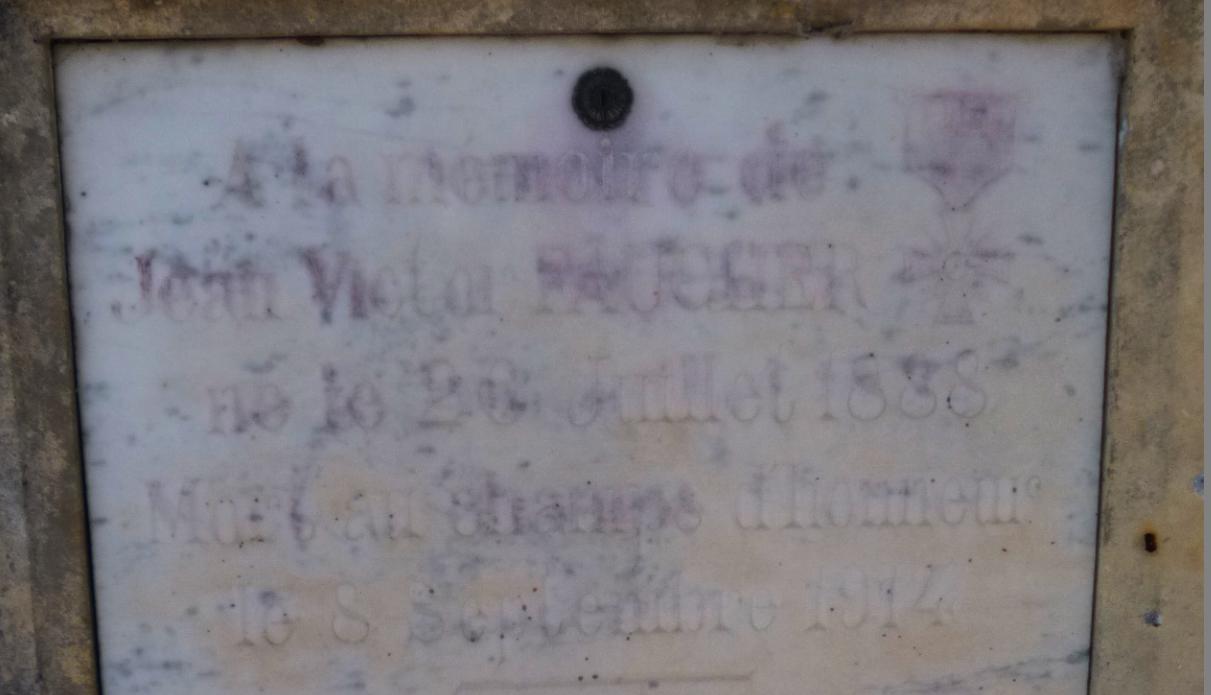 A la mémoire de
Jean Victor FAUCHER
né le 26 Juillet 1888
Mort au champs d'honneur
le 8 Septembre 1914